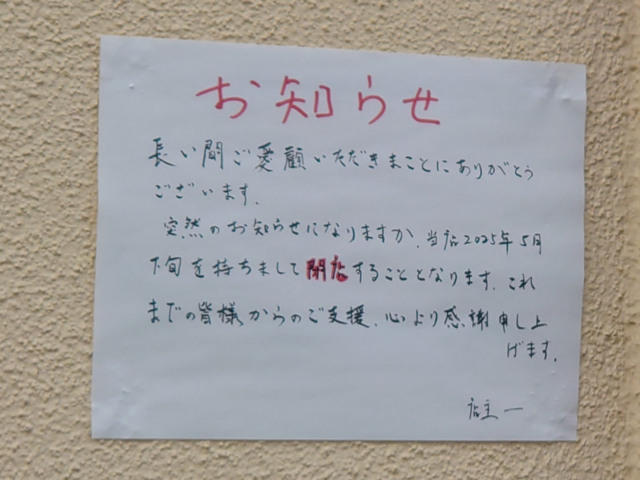 お知らせ
長い間ご愛顧いただきまことにありがとう
ございます.
突然のお知らせになりますが、当店2025年5月
下旬を持ちまして閉店することとなります. これ
までの皆様からのご支援、心より感謝申し上
げます.
店主一